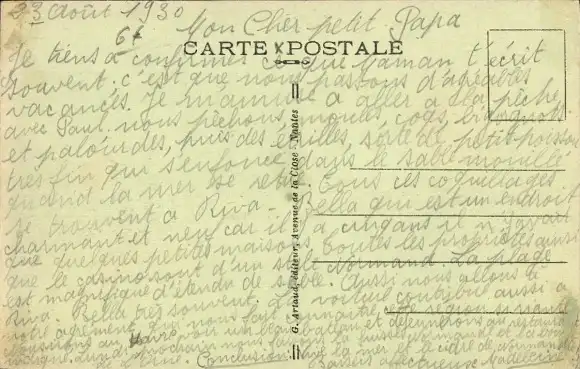 23 Août 1930
Mon Cher petit Papa
CARTE POSTALE
Je tiens à confirmer ce que Maman t'écrit
souvent. c'est que nous passons d'agréables
vacances. Je m'amuse à aller à la pêche
avec Paul. nous pêchons, moules, coqs, bourgots
et palourdes, puis des équilles, sorte de petit poisson
très fin qui s'enfonce dans le sable mouillé
quand la mer se retire. Tous ces coquillages
se trouvent à Riva-Bella qui est un endroit
charmant et neuf car il y a cinq ans il n'y avait
que quelques petites maisons toutes les propriétés ainsi
que le casino sont d'un style Normand. La plage
est magnifique d'étendu de sable. Aussi nous allons à
Riva-Bella très souvent. La voiture contribue aussi à
notre agrément, qui nous fait connaître
Havre voir un beau bateau et déjeunerons au restaurant
prochain nous
de l'Orne. Conclusion: la mer le cidre
Baisers affectueux Madeleine
G. Artaud, éditeur, Avenue de la Close - Nantes